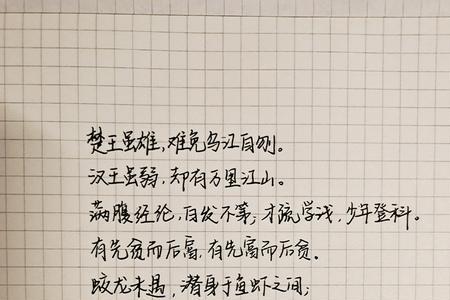 楚王虽雄，难免乌江自刎。
汉王虽弱，却有万里江山。
满腹经纶，白发不第；才疏学浅，少年登科。
有先贫而后富，有先富而后贫。
蛟龙未遇，潜身于鱼虾之间；